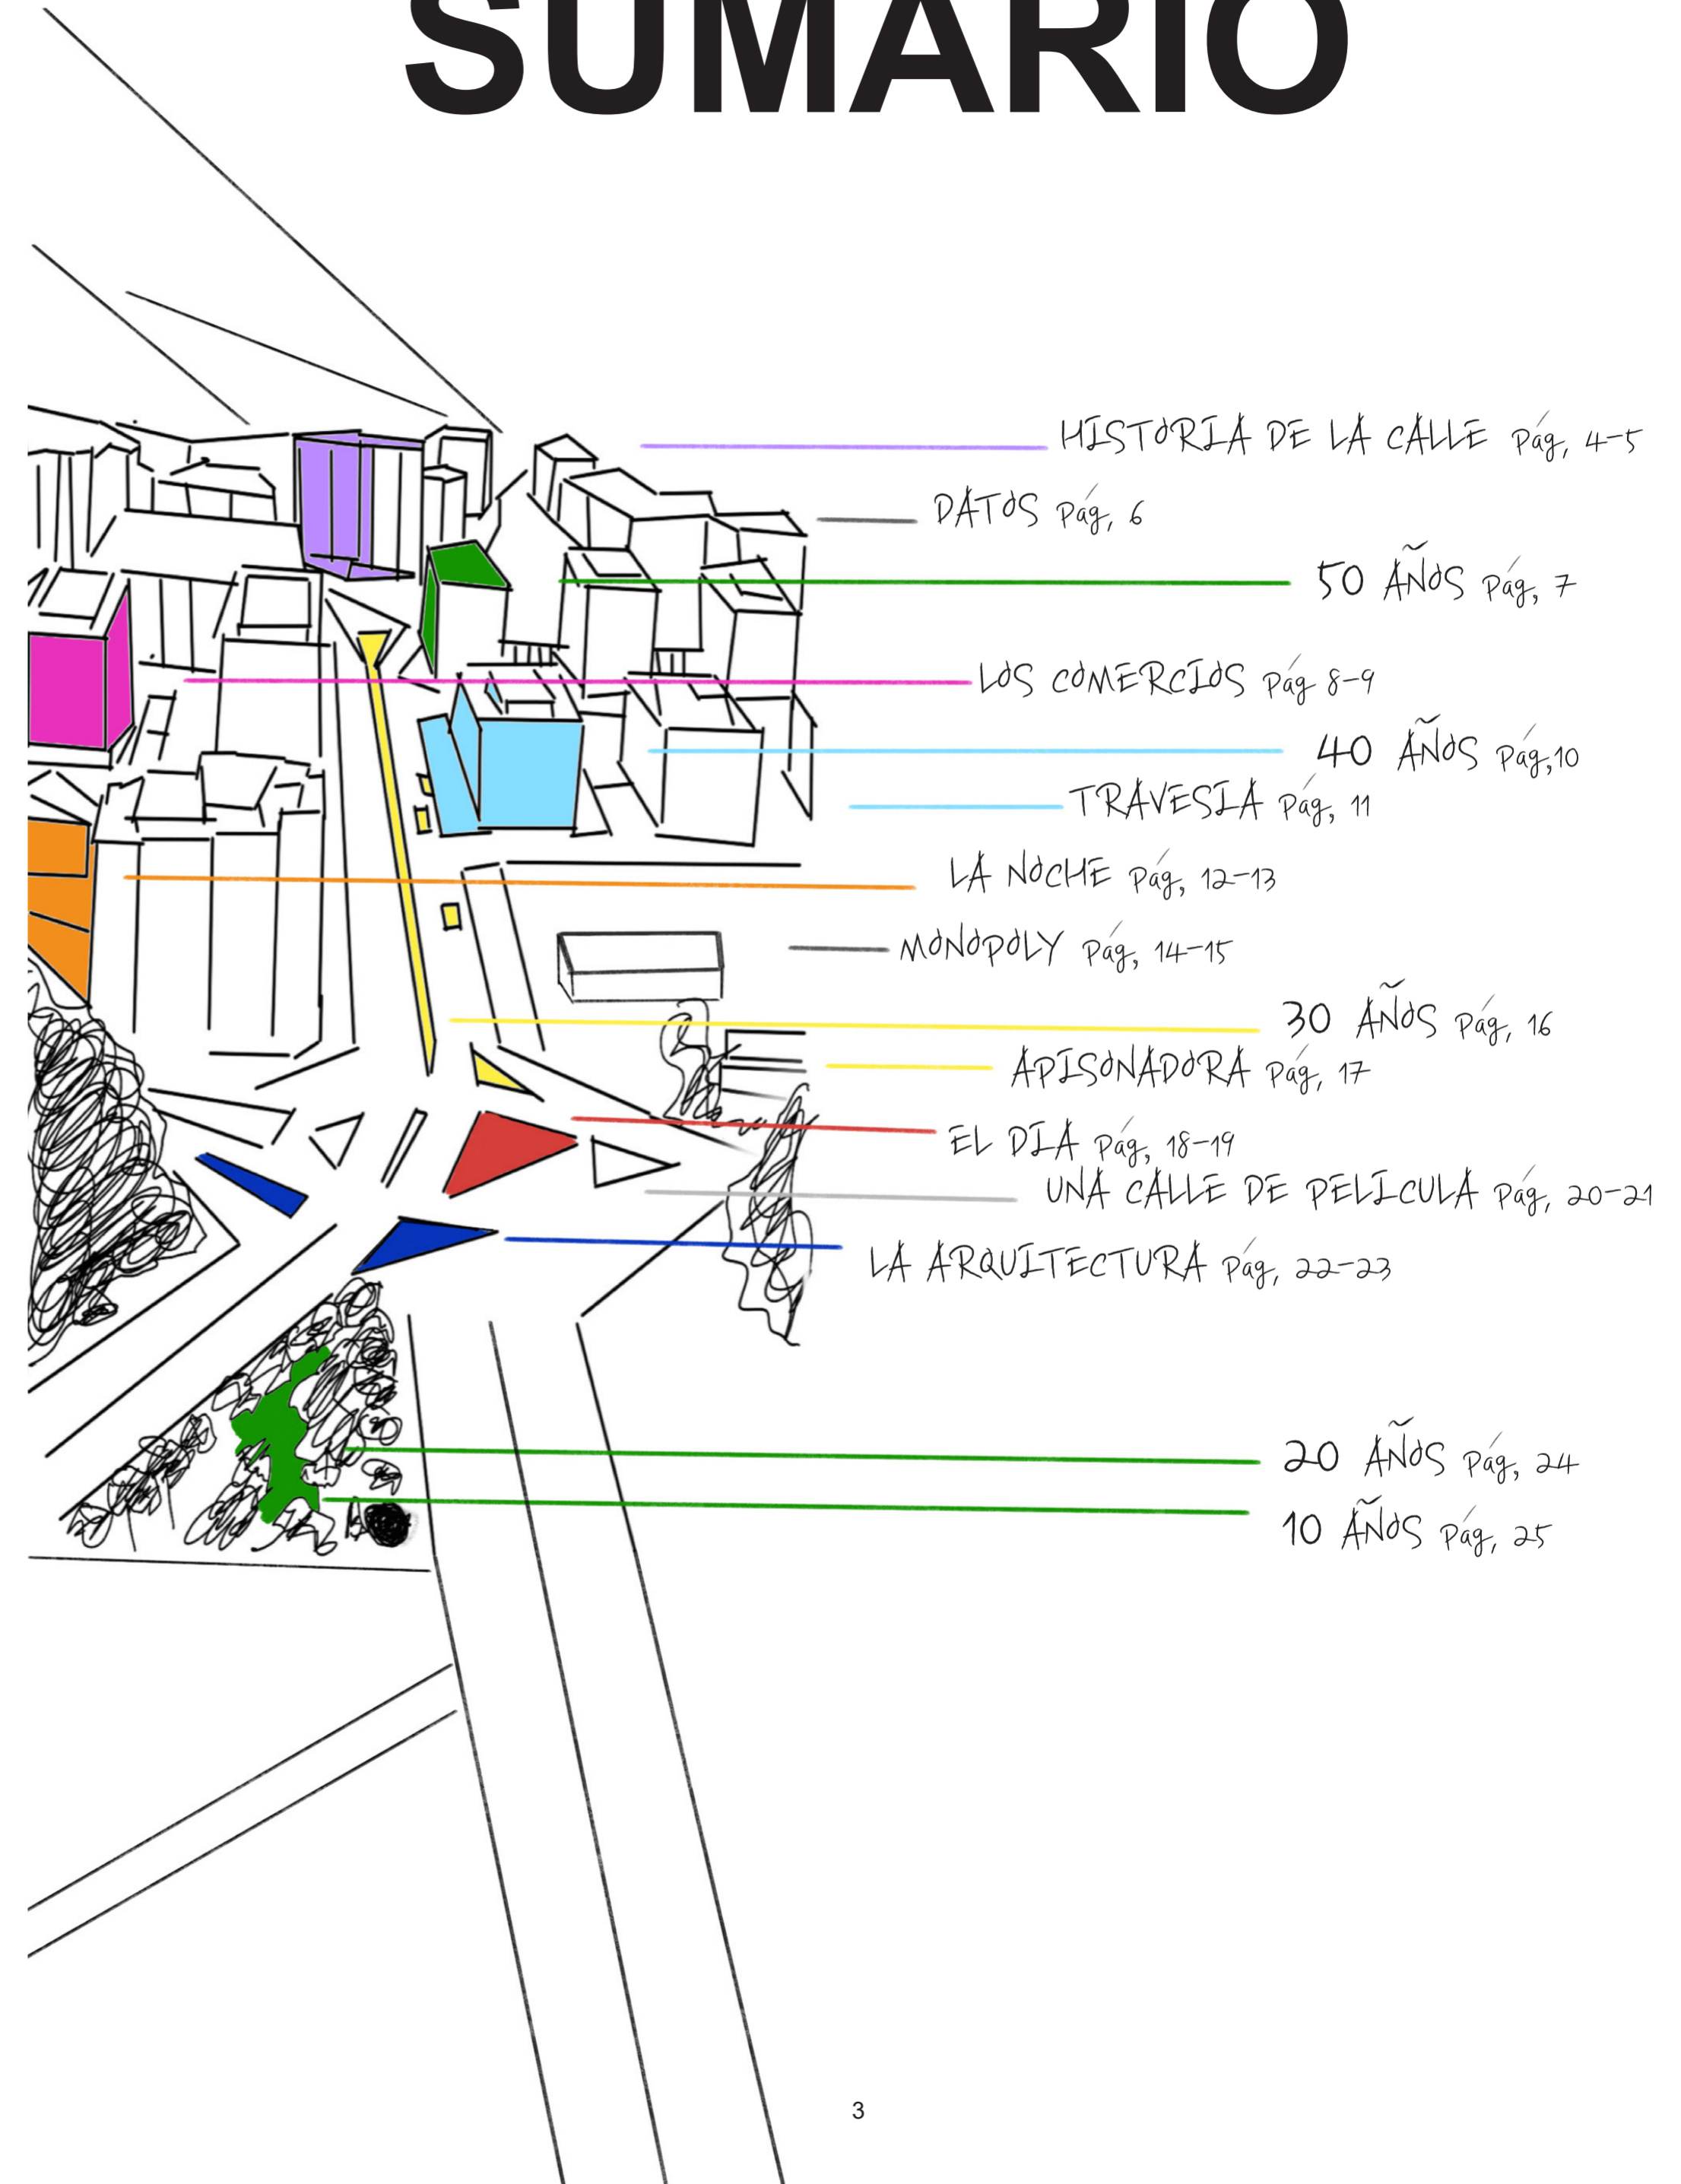 SUMARIO
HISTORIA DE LA CALLE Pág, 4-5
DATOS Pág, 6
50 AÑOS Pág, 7
LOS COMERCIOS Pág 8-9
40 AÑOS Pág,10
TRAVESIA Pág, 11
LA NOCHE Pág, 12-13
MONOPOLY Pág, 14-15
30 AÑOS Pág, 16
APISONADORA Pág, 17
EL DIA Pág, 18-19
UNA CALLE DE PELICULA Pág, 20-21
LA ARQUITECTURA Pág, 22-23
20 AÑOS Pág, 24
10 AÑOS Pág, 25
3